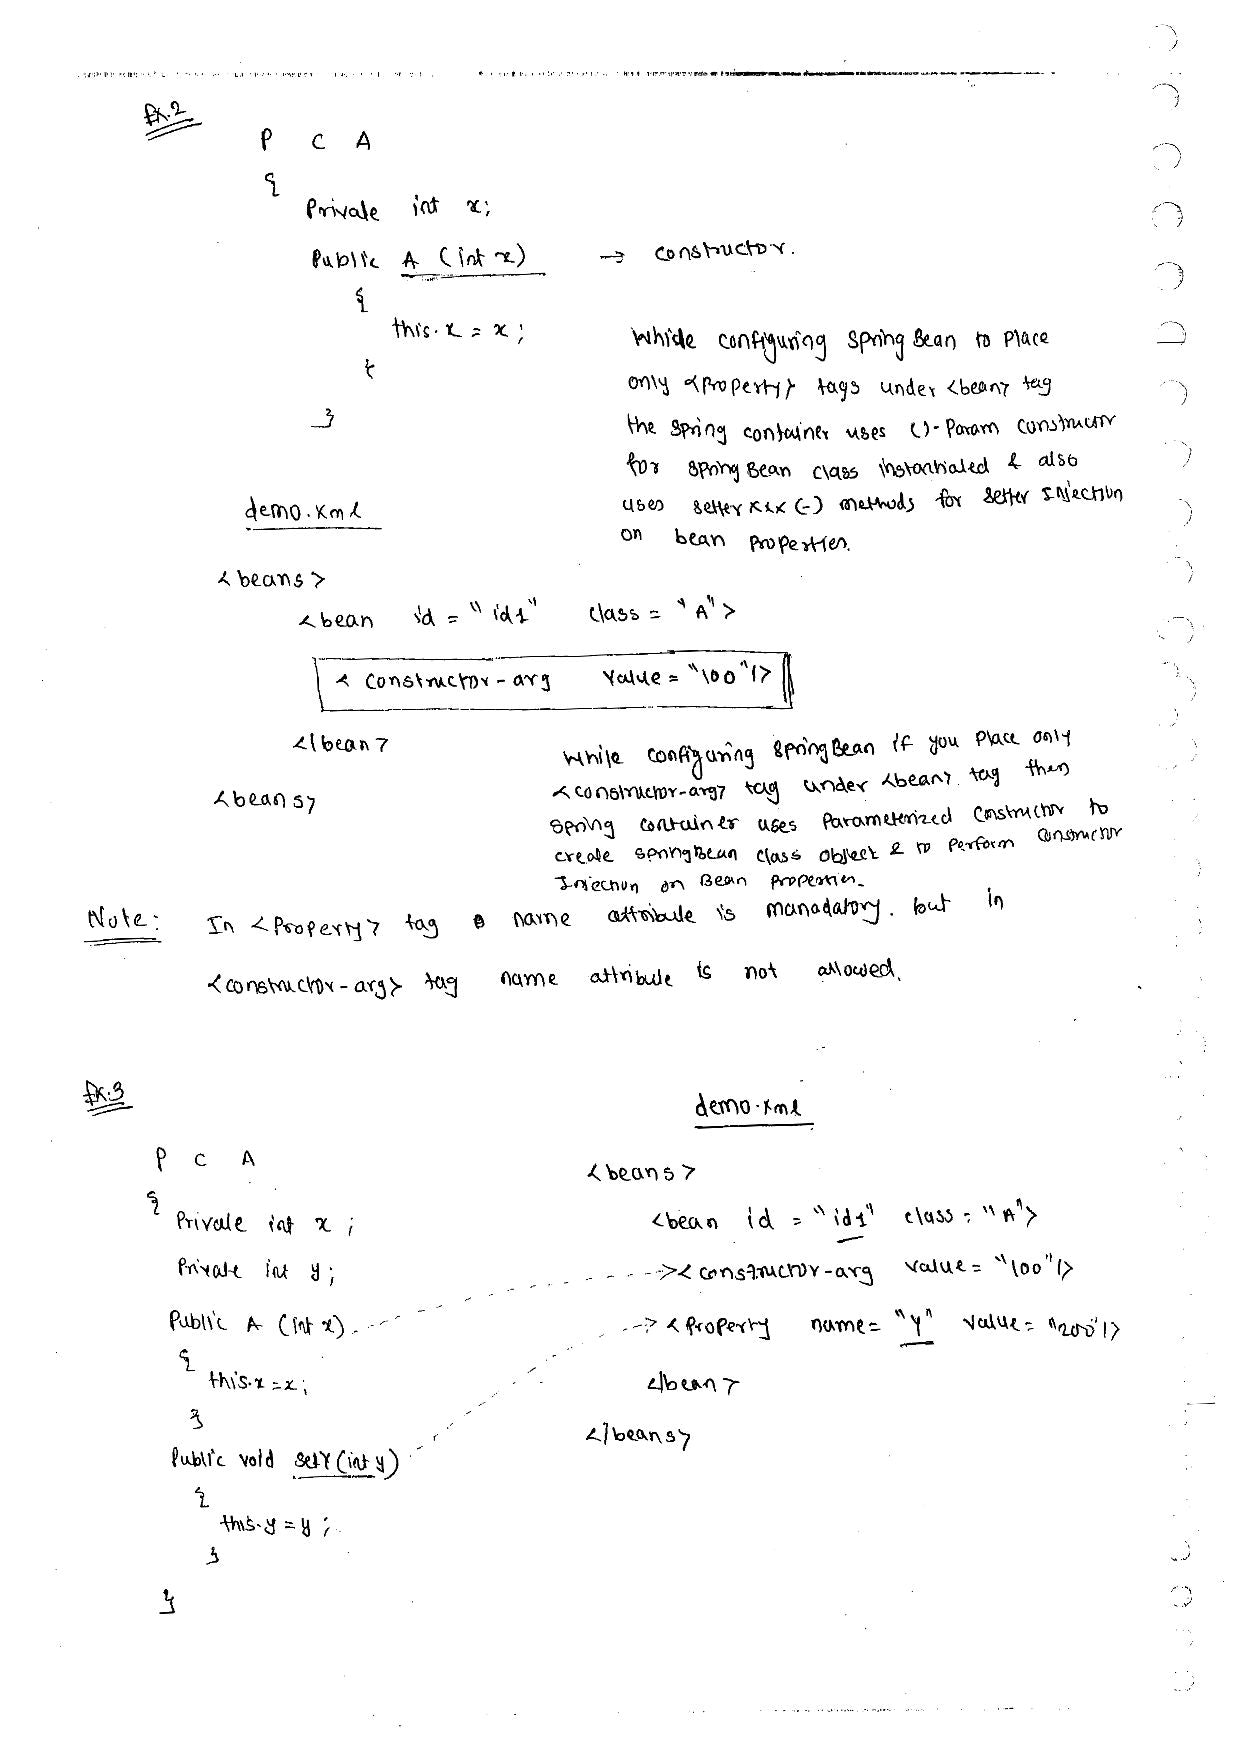 Ex.2
P C A
{
Private int x;
Public A (int x) → constructor.
{
this.x = x;
}
}
While configuring Spring Bean to Place
only <Property> tags under <bean> tag
the Spring container uses ()-Param constructor
for Spring Bean class instantiated & also
uses setterxxx (-) methods for setter Injection
on bean Properties.
demo.xml
<beans>
<bean id = "id1" class = "A">
< constructor-arg value = "100"/>
</bean>
<beans>
While configuring SpringBean if you Place only
<constructor-arg> tag under <bean> tag then
Spring container uses Parameterized constructor to
create SpringBean class object & to Perform constructor
Injection on Bean Properties.
Note: In <Property> tag name attribute is manadatory. but in
<constructor-arg> tag name attribute is not allowed.
Ex:3
P C A
{
Private int x ;
Private int y ;
Public A (int x)
{
this.x = x;
}
Public void setY (int y)
{
this.y = y ;
}
}
demo.xml
<beans>
<bean id = "id1" class = "A">
< constructor-arg value = "100"/>
< Property name = "Y" value = "200"/>
</bean>
</beans>